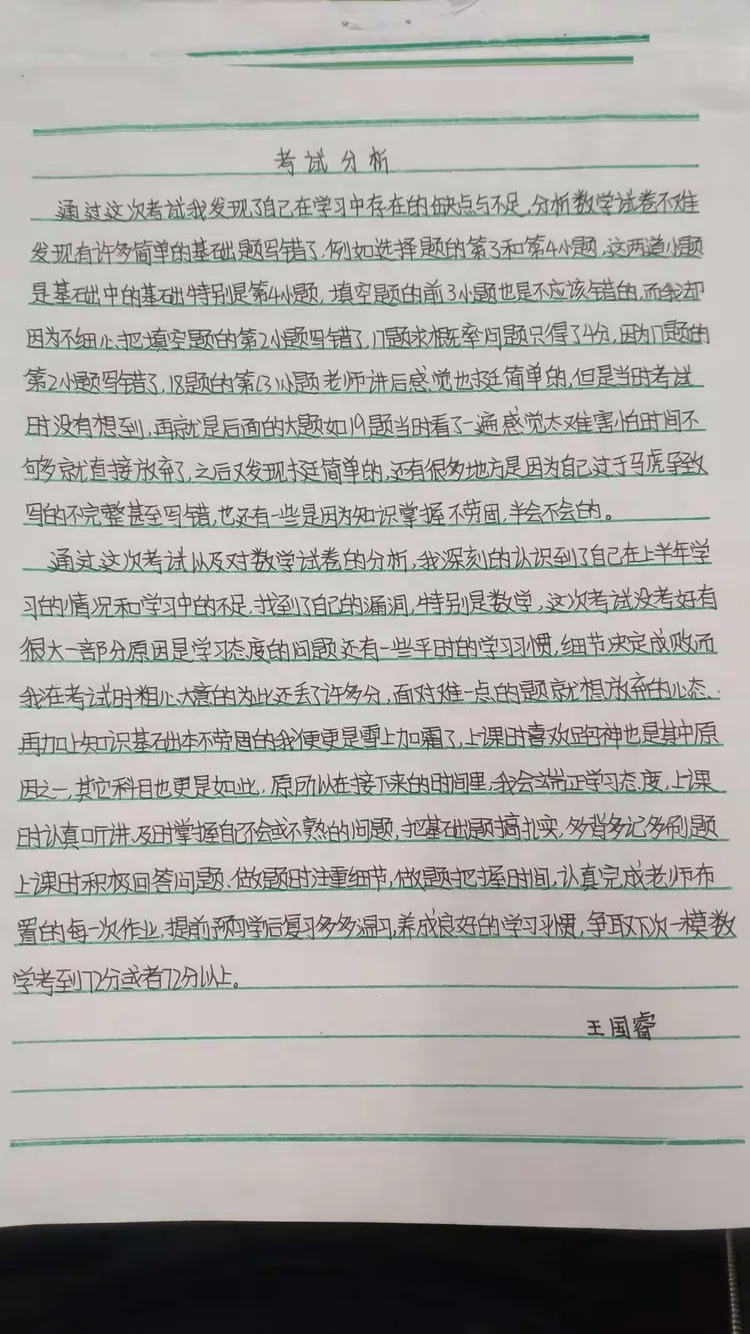 考试分析
通过这次考试我发现了自己在学习中存在的缺点与不足,分析数学试卷不难
发现有许多简单的基础题写错了,例如选择题的第3和第4小题,这两道小题
是基础中的基础特别是第4小题,填空题的前3小题也是不应该错的,而我却
因为不细心把填空题的第2小题写错了,17题求概率问题只得了4分,因为17题的
第2小题写错了,18题的第(3)小题老师讲后感觉也挺简单的,但是当时考试
时没有想到,再就是后面的大题如19题当时看了一遍感觉太难害怕时间不
够就直接放弃了,之后又发现挺简单的,还有很多地方是因为自己过于马虎导致
写的不完整甚至写错,也还有一些是因为知识掌握不劳固,半会不会的。
通过这次考试以及对数学试卷的分析,我深刻的认识到了自己在上半年学
习的情况和学习中的不足,找到了自己的漏洞,特别是数学,这次考试没考好有
很大一部分原因是学习态度的问题还有一些平时的学习习惯,细节决定成败而
我在考试时粗心大意的为此还丢了许多分,面对难一点的题就想放弃的心态、
再加上知识基础本不劳固的我便更是雪上加霜了,上课时喜欢跑神也是其中原
因之一,其它科目也更是如此,原所以在接下来的时间里,我会端正学习态度,上课
时认真听讲,及时掌握自己不会或不熟的问题,把基础题搞扎实,多背多记多刷题
上课时积极回答问题、做题时注重细节,做题把握时间,认真完成老师布
置的每一次作业,提前预习学后复习多多温习,养成良好的学习习惯,争取下次一模数
学考到72分或者72分以上。
王国睿